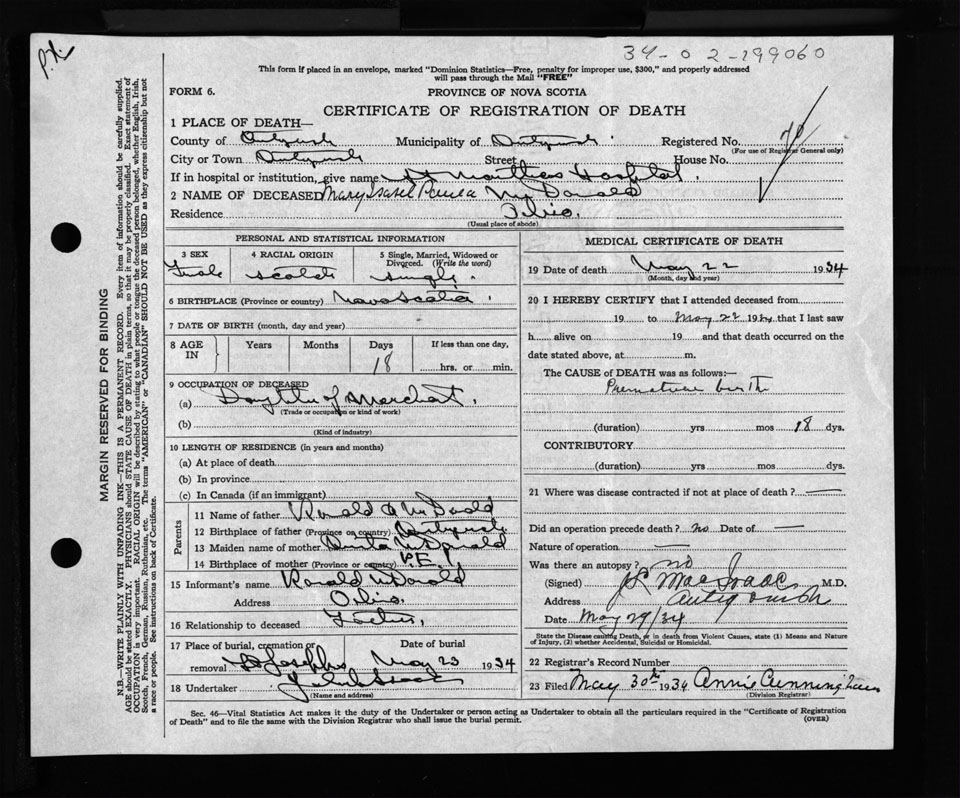 34-02-199060
This form if placed in an envelope, marked "Dominion Statistics—Free, penalty for improper use, $300," and properly addressed
will pass through the Mail "FREE"
FORM 6. PROVINCE OF NOVA SCOTIA
CERTIFICATE OF REGISTRATION OF DEATH
1 PLACE OF DEATH—
County of Antigonish Municipality of Antigonish Registered No. 70
(For use of Registrar General only)
City or Town Antigonish Street House No.
If in hospital or institution, give name St Marthas Hospital.
2 NAME OF DECEASED Mary Isabel McDonald
Residence Ohio.
(Usual place of abode)
PERSONAL AND STATISTICAL INFORMATION
3 SEX 4 RACIAL ORIGIN 5 Single, Married, Widowed or Divorced. (Write the word)
Female Scotch Single.
6 BIRTHPLACE (Province or country) Nova Scotia.
7 DATE OF BIRTH (month, day and year)
8 AGE IN Years Months Days If less than one day,
18 hrs. or min.
9 OCCUPATION OF DECEASED
(a) Daughter of Merchant.
(Trade or occupation or kind of work)
(b)
(Kind of industry)
10 LENGTH OF RESIDENCE (in years and months)
(a) At place of death
(b) In province
(c) In Canada (if an immigrant)
Parents
11 Name of father Ronald A McDonald
12 Birthplace of father (Province or country) Antigonish
13 Maiden name of mother McDonald
14 Birthplace of mother (Province or country) P.E.I.
15 Informant's name Ronald McDonald
Address Ohio.
16 Relationship to deceased Father.
17 Place of burial, cremation or removal Date of burial
St Josephs May 23 1934
18 Undertaker
(Name and address)
MEDICAL CERTIFICATE OF DEATH
19 Date of death May 22 1934
(Month, day and year)
20 I HEREBY CERTIFY that I attended deceased from
19 to May 22 1934 that I last saw
h alive on 19 and that death occurred on the
date stated above, at m.
The CAUSE OF DEATH was as follows:—
Premature birth
(duration) yrs mos 18 dys.
CONTRIBUTORY
(duration) yrs mos dys.
21 Where was disease contracted if not at place of death? —
Did an operation precede death? no Date of —
Nature of operation —
Was there an autopsy? no
(Signed) MacIsaac M.D.
Address Antigonish
Date May 29/34
State the Disease causing Death, or in death from Violent Causes, state (1) Means and Nature
of Injury, (2) whether Accidental, Suicidal or Homicidal.
22 Registrar's Record Number
23 Filed May 30th 1934 Annie Cunningham
(Division Registrar)
Sec. 46—Vital Statistics Act makes it the duty of the Undertaker or person acting as Undertaker to obtain all the particulars required in the "Certificate of Registration
of Death" and to file the same with the Division Registrar who shall issue the burial permit.
(OVER)
MARGIN RESERVED FOR BINDING
N.B.—WRITE PLAINLY WITH UNFADING INK—THIS IS A PERMANENT RECORD. Every item of information should be carefully supplied.
AGE should be stated EXACTLY. PHYSICIANS should STATE CAUSE OF DEATH in plain terms, so that it may be properly classified. Exact statement of
OCCUPATION is very important. RACIAL ORIGIN will be described by stating to what people or tongue the deceased person belonged, whether English, Irish,
Scotch, French, German, Russian, Ruthenian, etc. The terms "AMERICAN" or "CANADIAN" SHOULD NOT BE USED as they express citizenship but not
a race or people. See instructions on back of Certificate.